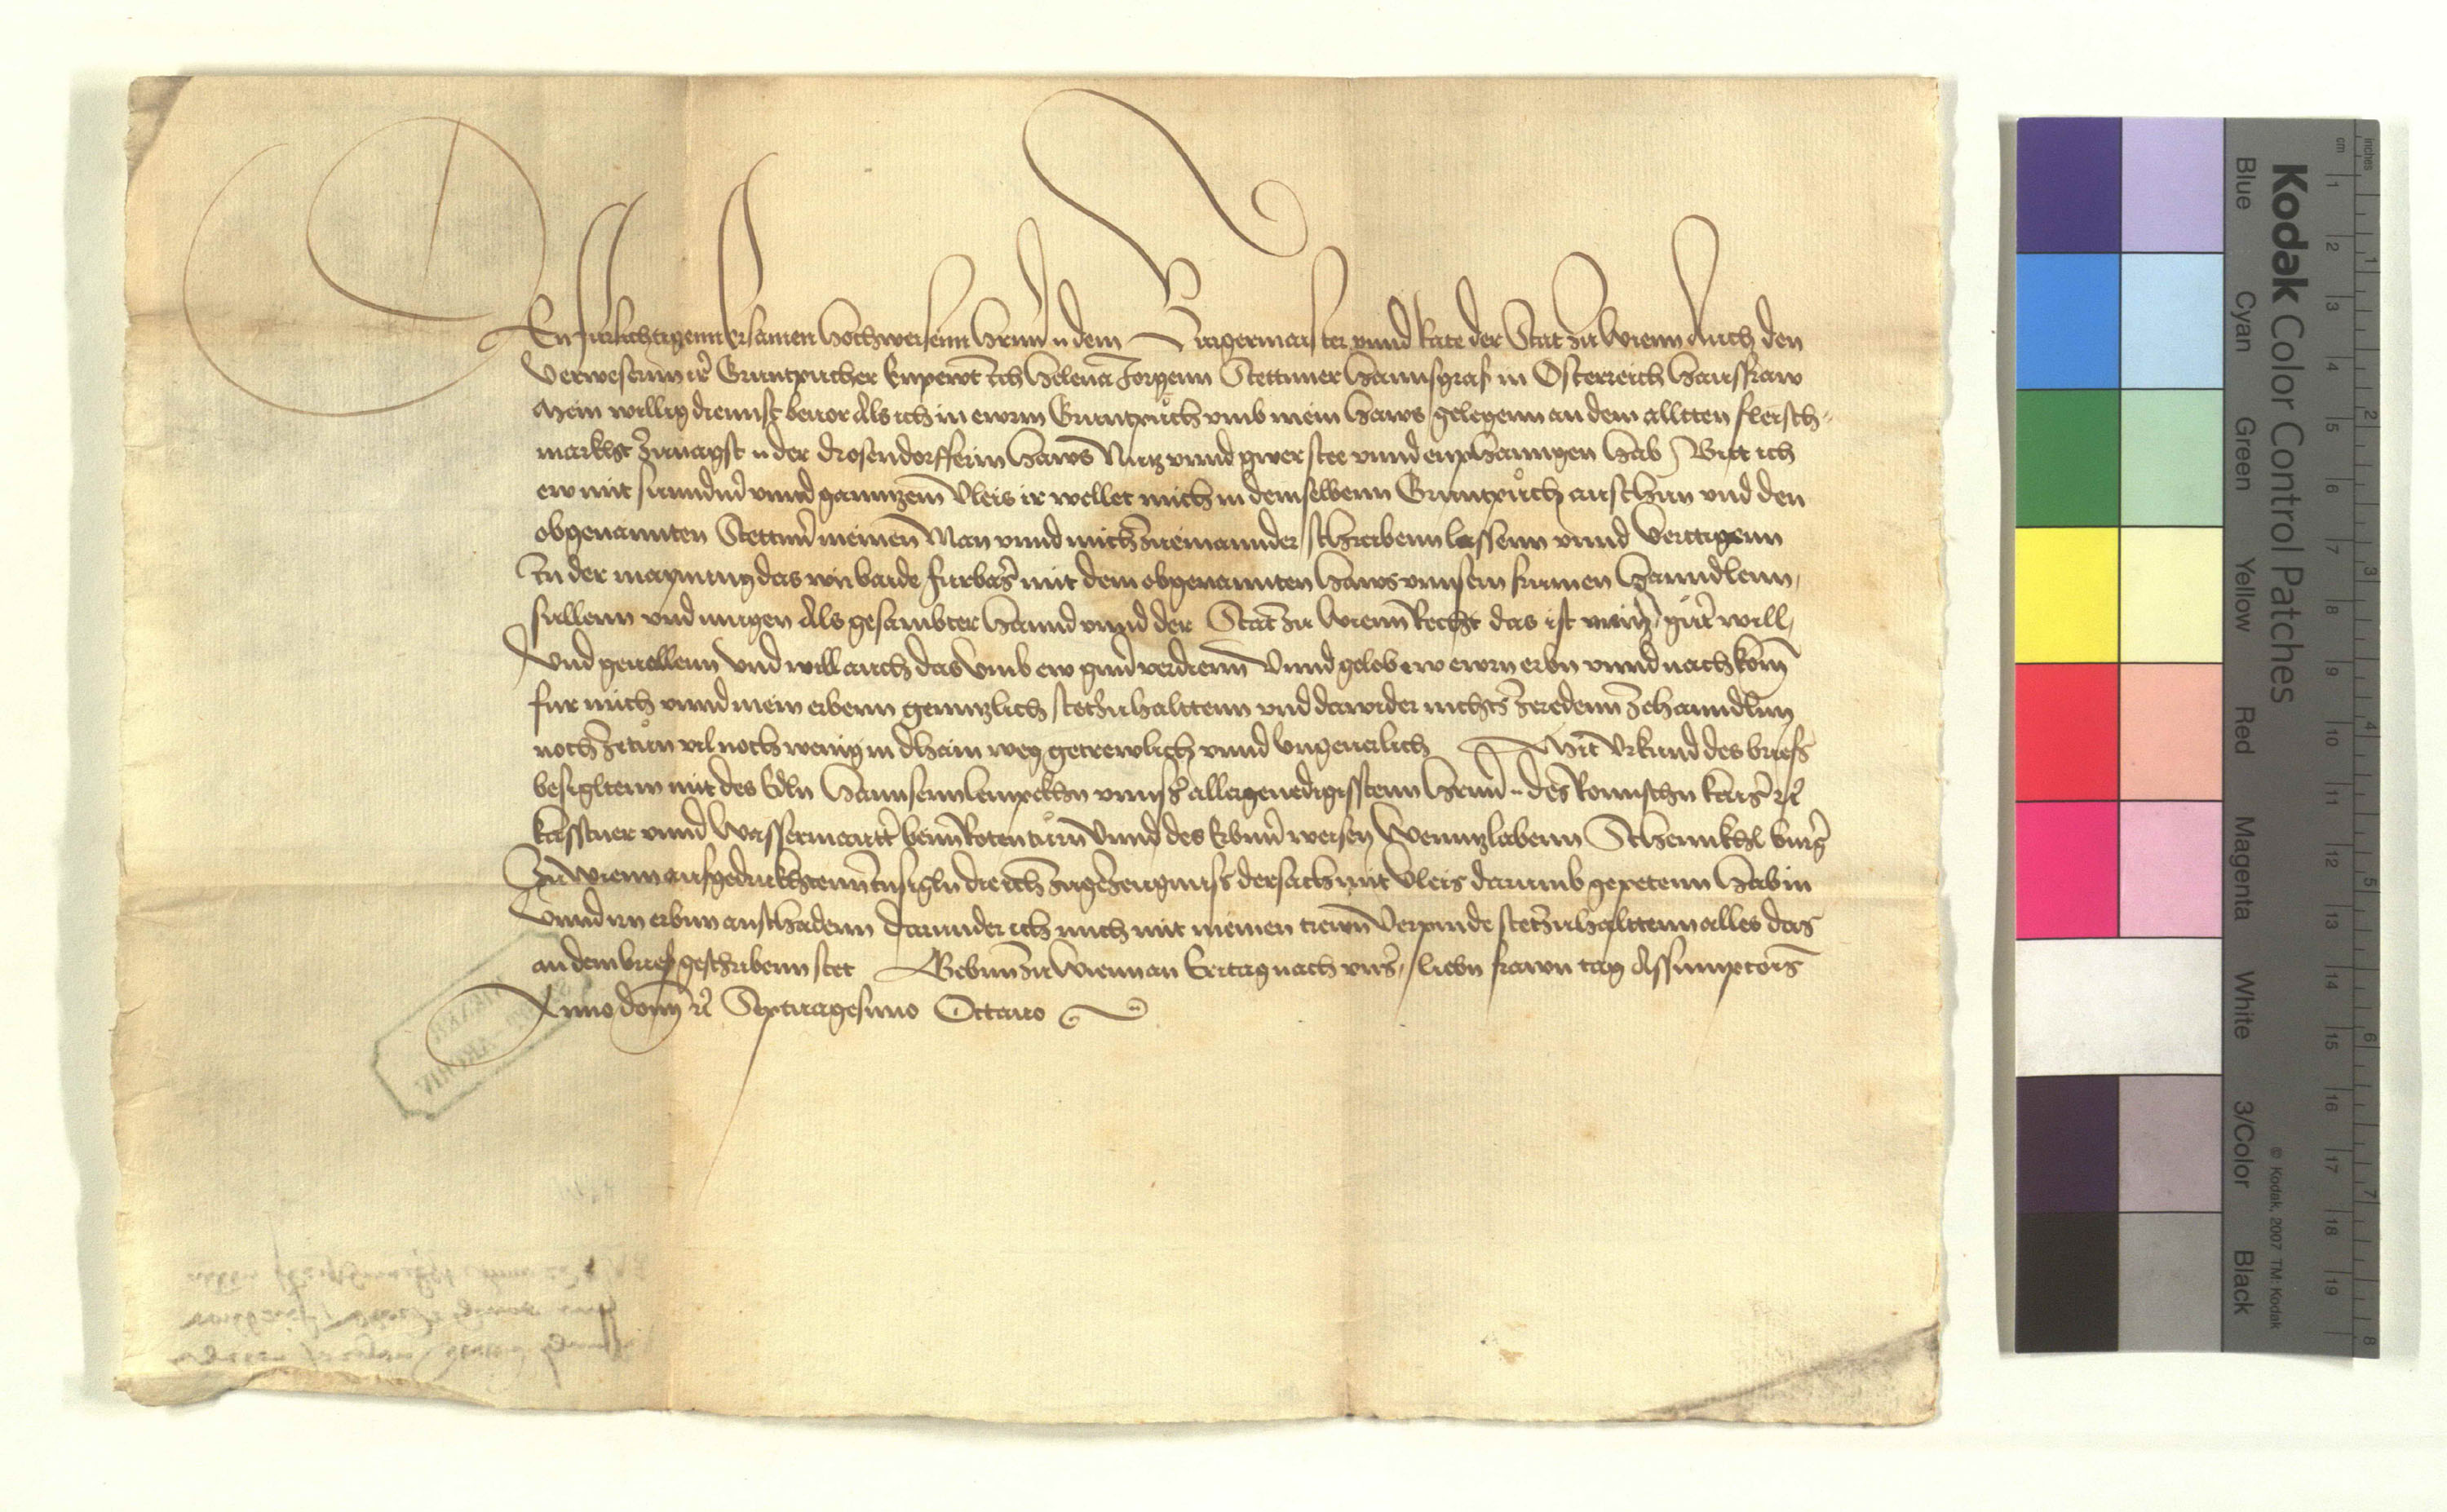 Den fursichtigenn Ersamen Hochweisenn Herrnn dem Burgermaister vnnd Rate der Stat zu Wienn Auch den
Verwesernn ir Gruntpucher Enpewt Ich Helena Jorgenn Stettnner Hannsgraf in Osterreich Hausfraw
Mein willig diennst beuor Als ich in ewrm Gruntpuch vmb mein Haws gelegenn an dem alltten fleisch-
markht zunagst der drosendorfferin Haws Nutz vnnd gwer stee vnnd emphanngen hab Bitt ich
ew mit sunndern vnnd ganntzem Vleis ir wellet mich in demselbenn Gruntpuch austhun vnd den
obgenannten Stettner meinen Man vnnd mich zueinannder schreibenn lassenn vnnd Verttigenn
In der maynung das wir baide furbas mit dem obgenannten Haws vnnsern frumen Hanndlenn
sullenn vnd mugen Als gesambter Hannd vnnd der Stat zu Wienn Recht das ist mein guter will
Vnd geuallenn Vnd will auch das vmb ew gern verdienn Vnnd gelob ew ewrn erbn vnnd nachkomen
fur mich vnnd mein erbenn genntzlich stet zuhalttenn vnd dawider nichts zeredenn zehanndlnn
noch zetun vil noch wenig in dhain weg getrewlich vnnd Vngeuerlich Mit Vrkund des briefs
besigltenn mit des Edln Hannsenn lempekhn vnnsers allergenedigisstenn Herrnn des Romischn kaisers etc
kasstner vnnd Wassermautter beim Rotenturn Vnnd des Erbern weisen Wenntzlabenn Schennkhl burger
zu Wienn aufgedrukhtenn Insigln die ich zugezeugnuss der sach mit Vleis darumb gepetenn hab in
Vnnd irn erbnn an schadenn Darunder ich mich mit meinen trewn Verpinde stet zuhalttenn alles das
an dem brief geschribenn stet Gebenn zu Wienn an Eritag nach vnser lieben frawn tag Assumptionis
Anno domini etc Septuagesimo Octauo
Kodak Color Control Patches
Blue Cyan Green Yellow Red Magenta White 3/Color Black
© Kodak, 2007 TM: Kodak
inches 1 2 3 4 5 6 7 8
cm 1 2 3 4 5 6 7 8 9 10 11 12 13 14 15 16 17 18 19